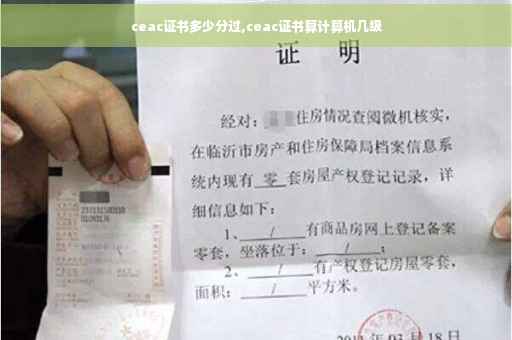 ceac证书多少分过,ceac证书算计算机几级
证 明
经对： 住房情况查阅微机核实，
在临沂市房产和住房保障局档案信息系
统内现有 零 套房屋产权登记记录，详
细信息如下：
1、 / 有商品房网上登记备案
零套，坐落位于： / ；
2、 / 有产权登记房屋零套，
面积： / 平方米。
03 月 18 日